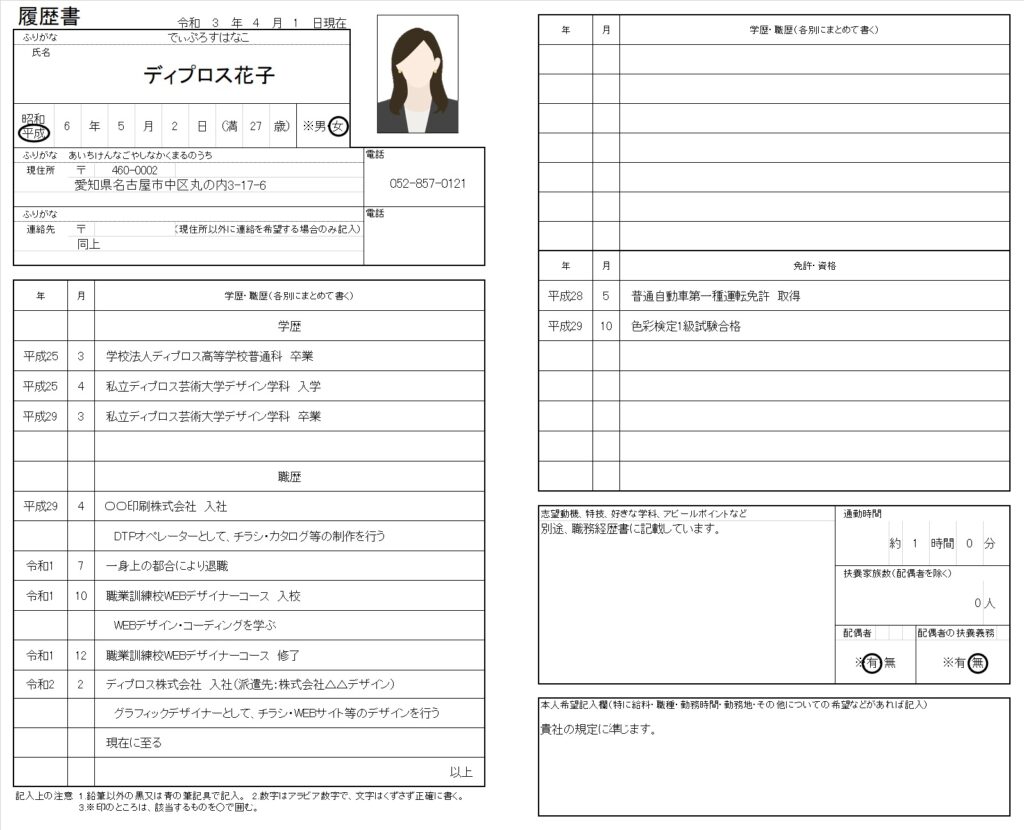 履歴書
令和 3 年 4 月 1 日現在
ふりがな でぃぷろすはなこ
氏名
ディプロス花子
昭和
平成
6 年 5 月 2 日 (満 27 歳) ※男・女
ふりがな あいちけんなごやしなかくまるのうち
電話
現住所 〒 460-0002
愛知県名古屋市中区丸の内3-17-6
052-857-0121
ふりがな
電話
連絡先 〒 (現住所以外に連絡を希望する場合のみ記入)
同上
年 月 学歴・職歴(各別にまとめて書く)
学歴
平成25 3 学校法人ディプロス高等学校普通科 卒業
平成25 4 私立ディプロス芸術大学デザイン学科 入学
平成29 3 私立ディプロス芸術大学デザイン学科 卒業
職歴
平成29 4 〇〇印刷株式会社 入社
DTPオペレーターとして、チラシ・カタログ等の制作を行う
令和1 7 一身上の都合により退職
令和1 10 職業訓練校WEBデザイナーコース 入校
WEBデザイン・コーディングを学ぶ
令和1 12 職業訓練校WEBデザイナーコース 修了
令和2 2 ディプロス株式会社 入社(派遣先:株式会社△△デザイン)
グラフィックデザイナーとして、チラシ・WEBサイト等のデザインを行う
現在に至る
以上
記入上の注意 1.鉛筆以外の黒又は青の筆記具で記入。 2.数字はアラビア数字で、文字はくずさず正確に書く。
3.※印のところは、該当するものを〇で囲む。
年 月 学歴・職歴(各別にまとめて書く)
年 月 免許・資格
平成28 5 普通自動車第一種運転免許 取得
平成29 10 色彩検定1級試験合格
志望動機、特技、好きな学科、アピールポイントなど
別途、職務経歴書に記載しています。
通勤時間
約 1 時間 0 分
扶養家族数(配偶者を除く)
0 人
配偶者
※有・無
配偶者の扶養義務
※有・無
本人希望記入欄(特に給料・職種・勤務時間・勤務地・その他についての希望などがあれば記入)
貴社の規定に準じます。